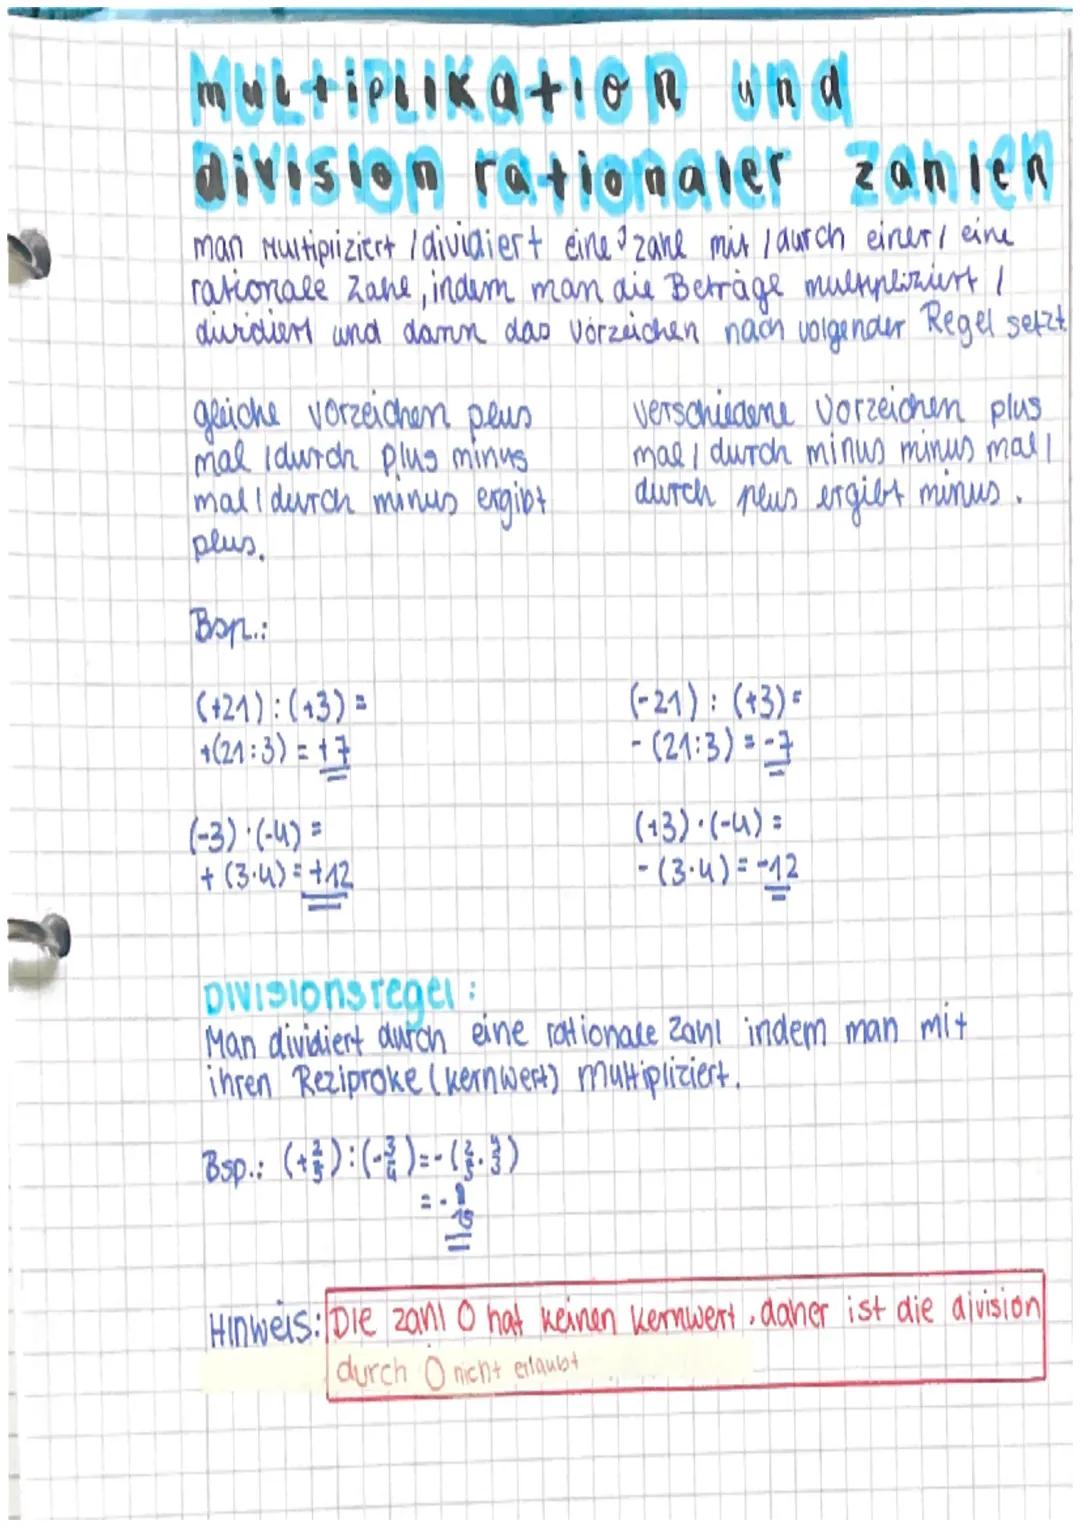 Multiplikation und
division rationaler zahlen
man Multipliziert / dividiert eine zahl mit / durch einer / eine
rationale Zahl, indem man die Beträge multipliziert /
dividiert und dann das Vorzeichen nach volgender Regel setzt
gleiche vorzeichen plus
mal / durch plus minus
mal / durch minus ergibt
plus.
verschiedene Vorzeichen plus
mal / durch minus minus mal /
durch plus ergibt minus.
Bsp.:
(+21) : (+3) =
+(21:3) = +7
(-21) : (+3) =
- (21:3) = -7
(-3) · (-4) =
+ (3·4) = +12
(+3) · (-4) =
- (3·4) = -12
Divisionsregel:
Man dividiert durch eine rationale Zahl indem man mit
ihren Reziproke (kernwert) multipliziert.
Bsp.: (+2/5) : (-3/4) = - (2/5 · 4/3)
= - 8/15
Hinweis: Die zahl 0 hat keinen kernwert, daher ist die division
durch 0 nicht erlaubt